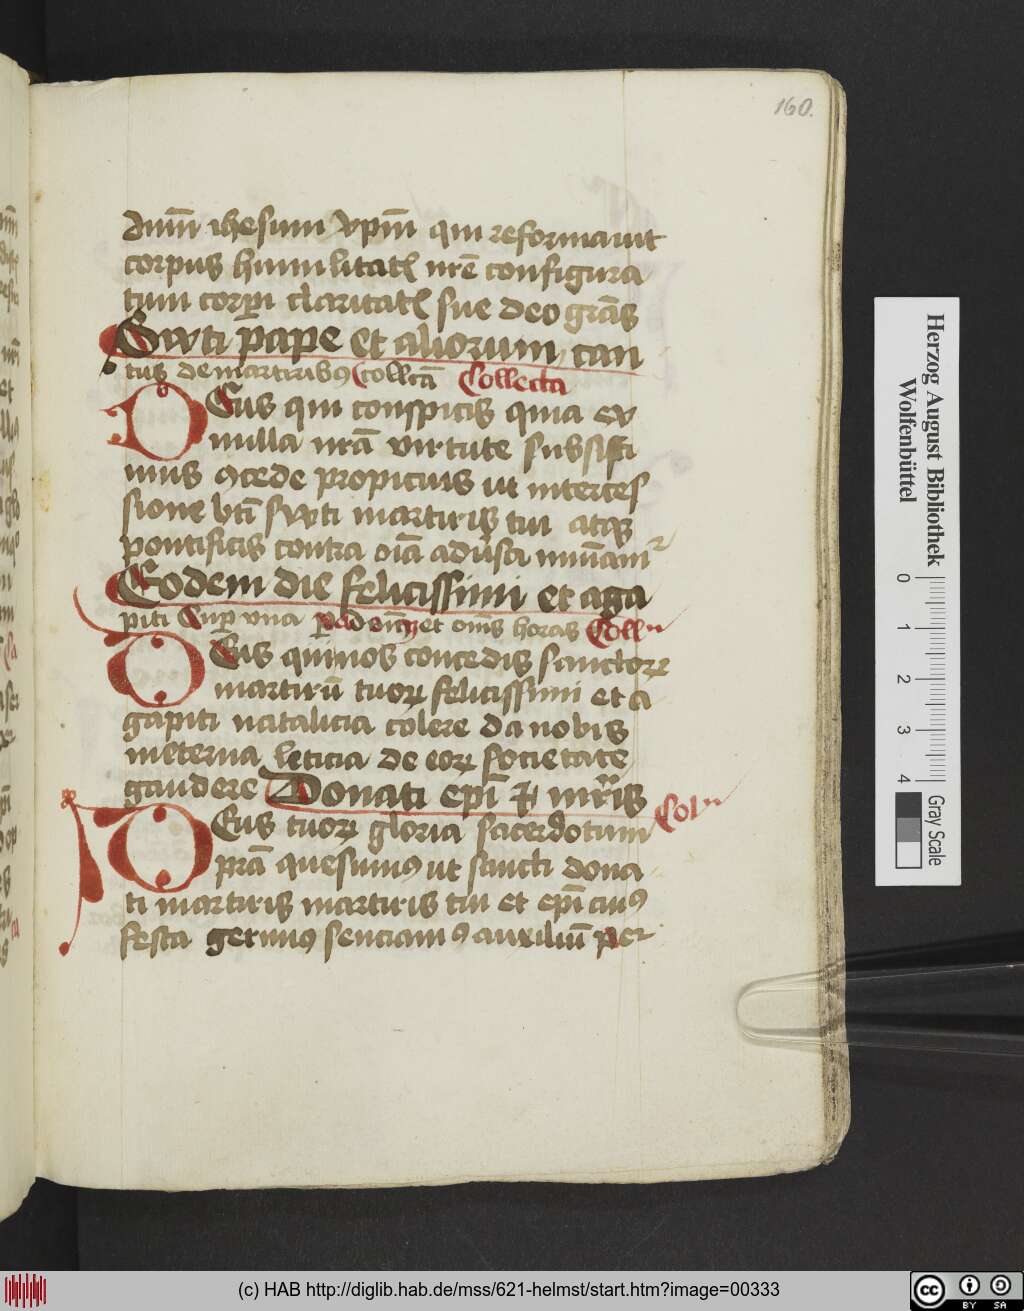 160.
dnm̄ ihesum xpm̄ qui reformauit
corpus humilitatꝭ nrē configura
tum corpori claritatꝭ sue deo grās
Sixti pape et aliorum can
tus de martiribus Collcā Collecta
DEus qui conspicis quia ex
nulla nrā virtute subsisti
mus ꝯcede propicius ut interces
sione btī sixti martiris tui atqꝫ
pontificis contra oīa aduersa muniamr
Eodem die felicissimi et aga
piti Sup vna et om̄s horas Coll
DEus qui nos concedis sanctoꝝ
martirū tuoꝝ felicissimi et a
gapiti natalicia colere da nobis
in eterna leticia de eoꝝ societate
gaudere Donati epī et mr̄is Col
DEus tuoꝝ gloria sacerdotum
prā quesumꝰ ut sancti dona
ti martiris martiris tui et epī cuiꝰ
festa gerimꝰ senciamꝰ auxiliū per
Herzog August Bibliothek
Wolfenbüttel
0 1 2 3 4
Gray Scale
(c) HAB http://diglib.hab.de/mss/621-helmst/start.htm?image=00333
cc BY SA